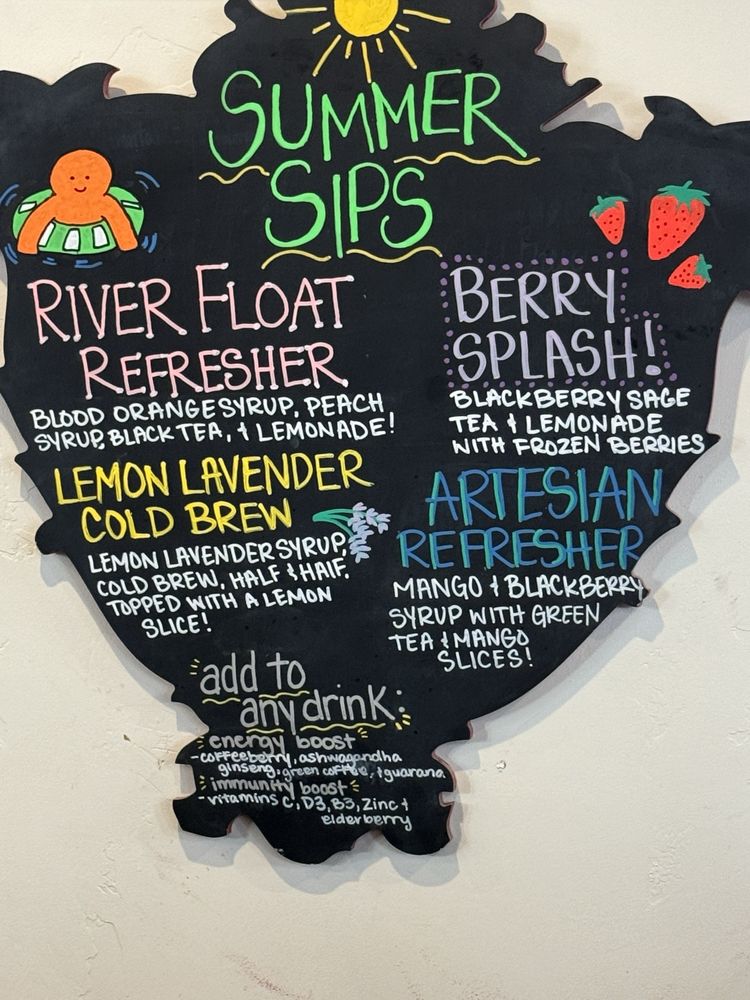 SUMMER
SIPS
RIVER FLOAT
REFRESHER
BLOOD ORANGE SYRUP, PEACH
SYRUP, BLACK TEA, & LEMONADE!
BERRY
SPLASH!
BLACKBERRY SAGE
TEA & LEMONADE
WITH FROZEN BERRIES
LEMON LAVENDER
COLD BREW
LEMON LAVENDER SYRUP,
COLD BREW, HALF & HALF,
TOPPED WITH A LEMON
SLICE!
ARTESIAN
REFRESHER
MANGO & BLACKBERRY
SYRUP WITH GREEN
TEA & MANGO
SLICES!
add to
any drink:
energy boost
-coffeeberry, ashwagandha
ginseng, green coffee, & guarana
immunity boost
-vitamins C, D3, B3, Zinc &
elderberry